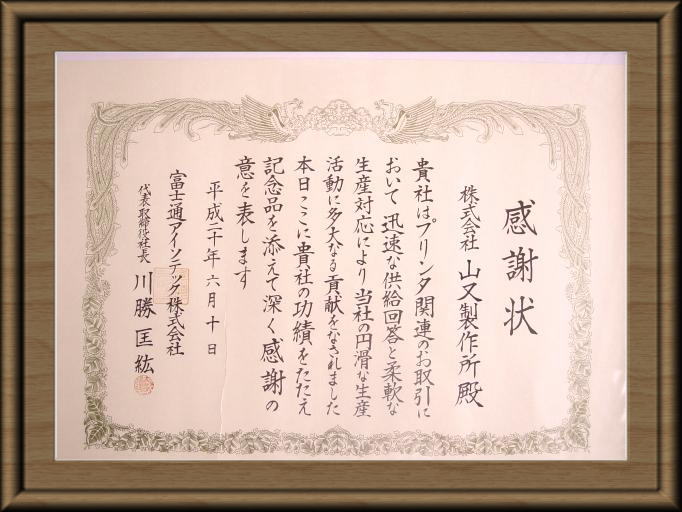 感謝状
株式会社 山又製作所殿
貴社はプリンタ関連のお取引に
おいて迅速な供給回答と柔軟な
生産対応により当社の円滑な生産
活動に多大なる貢献をなされました
本日ここに貴社の功績をたたえ
記念品を添えて深く感謝の
意を表します
平成二十年六月十日
富士通アイソテック株式会社
代表取締役社長 川勝 匡紘